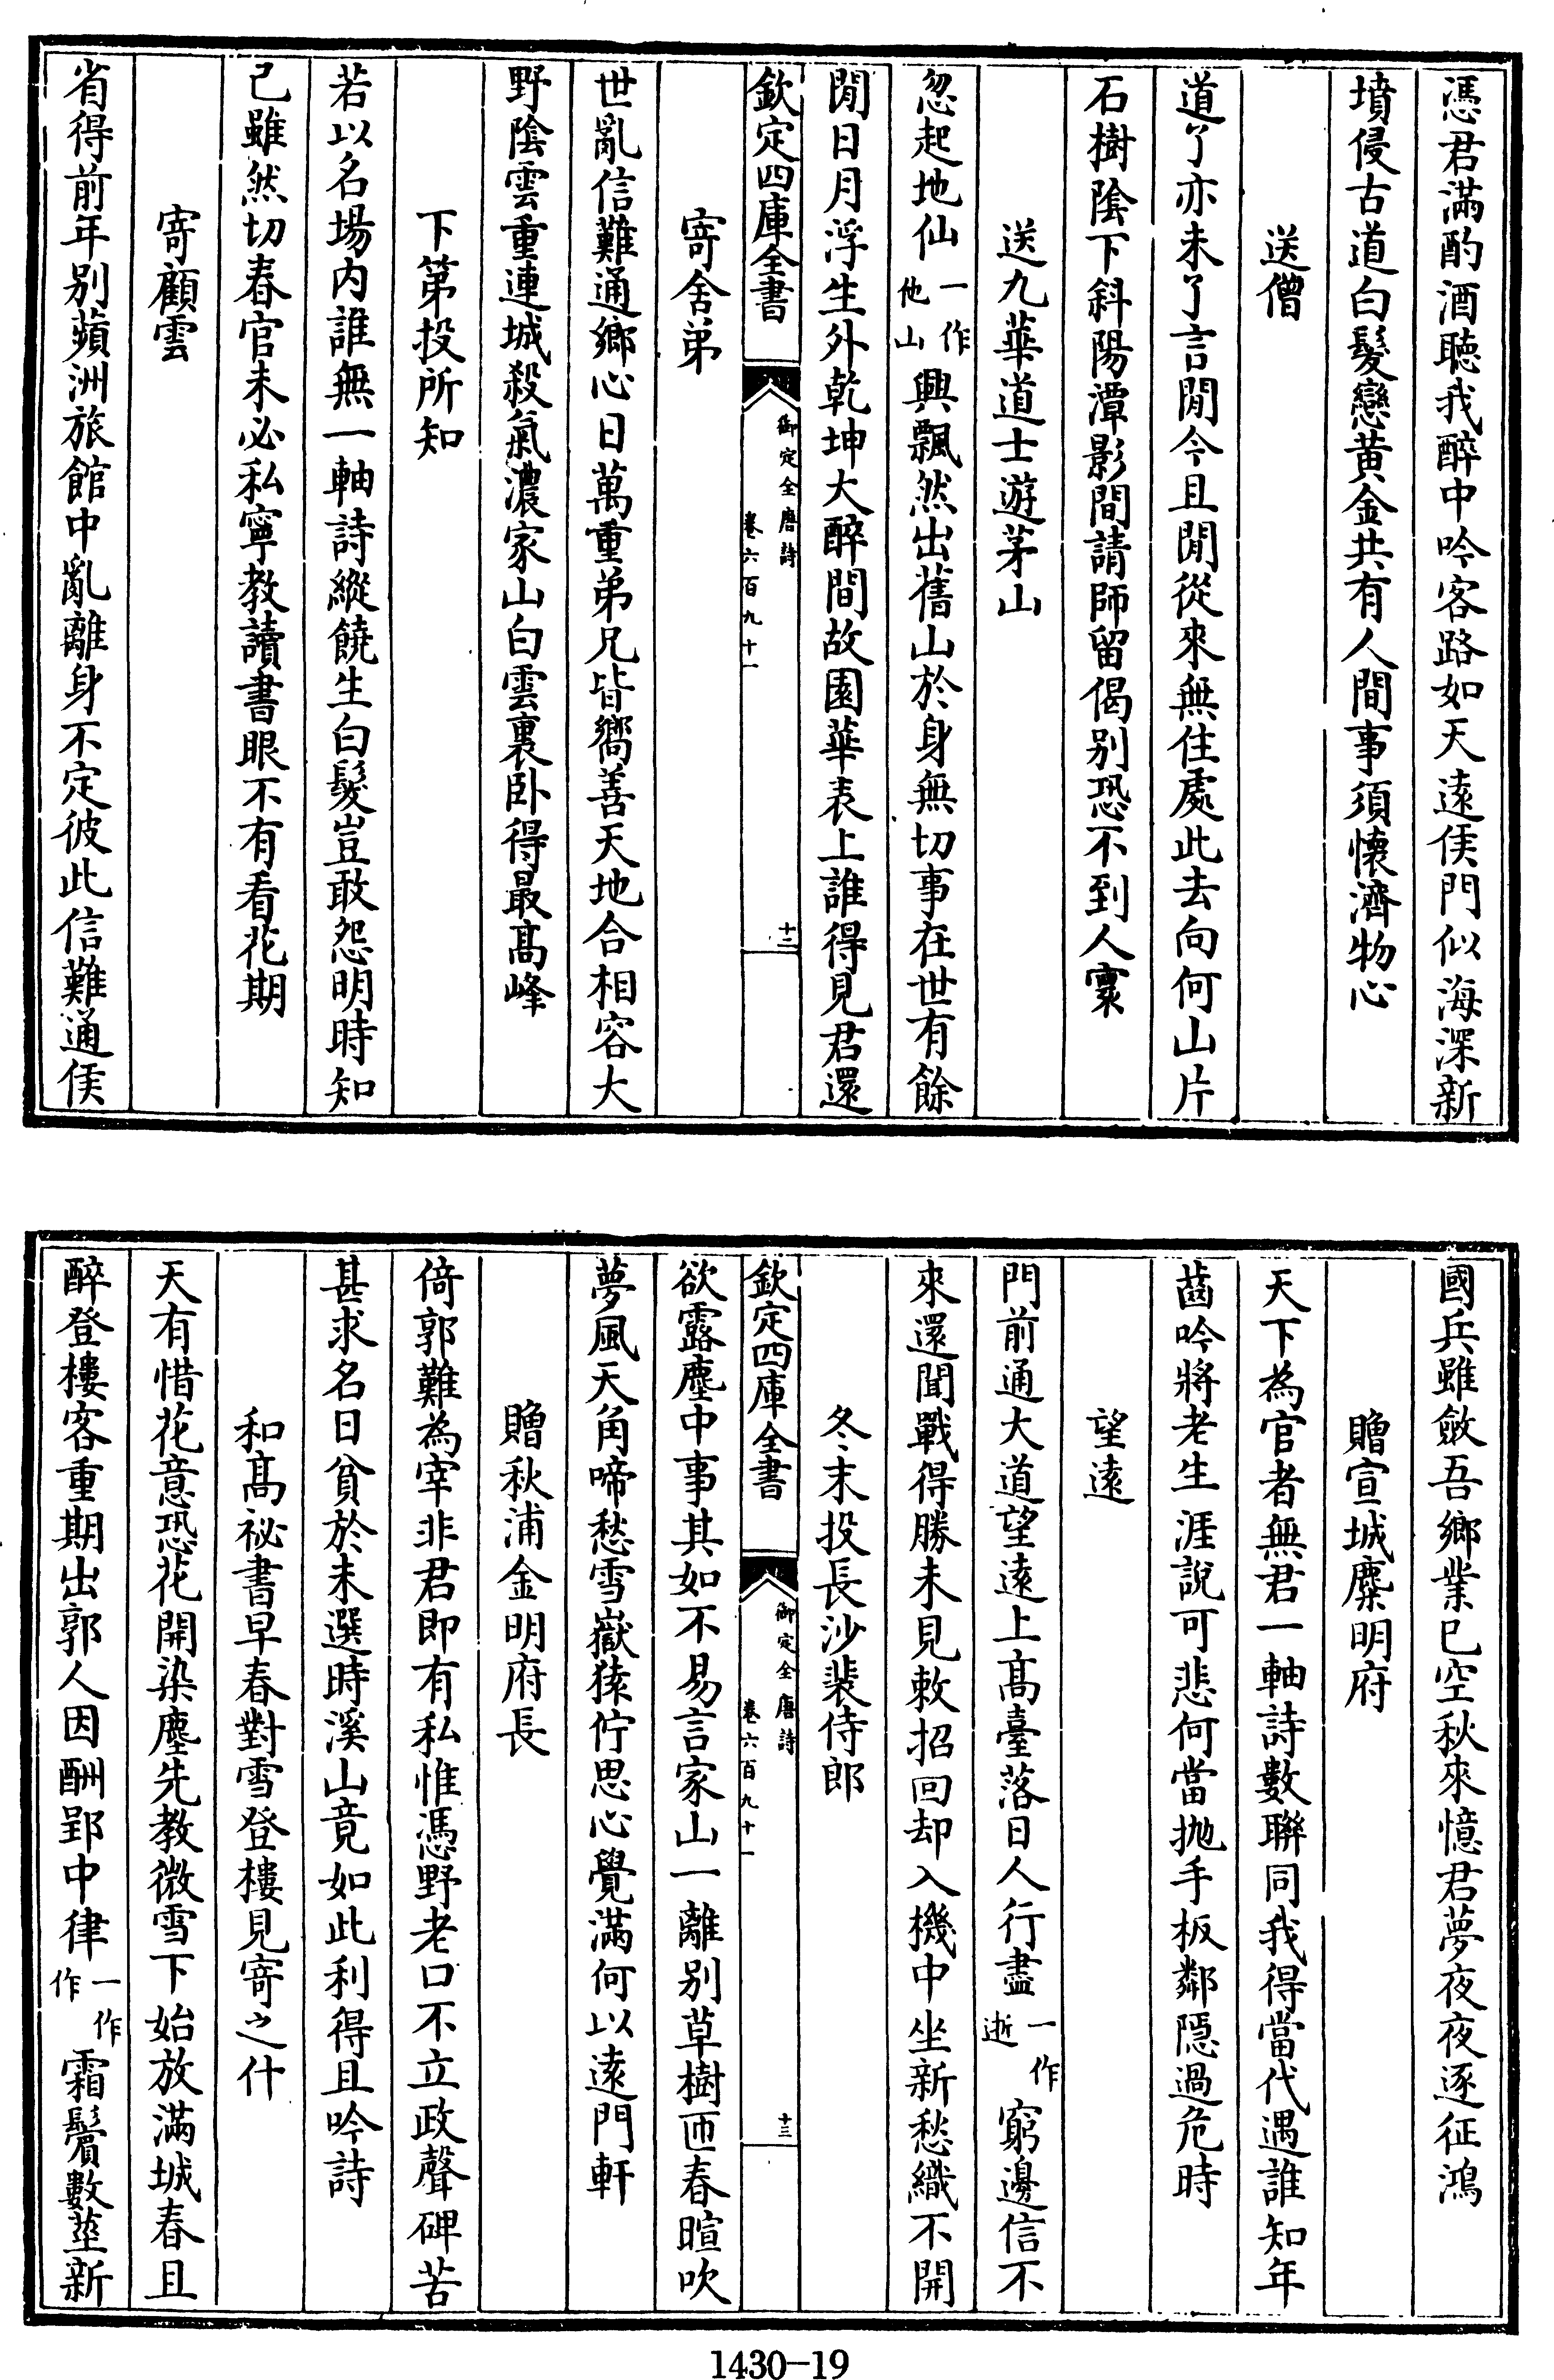 憑君滿酌酒聽我醉中吟客路如天遠侯門似海深新
墳侵古道白髮戀黃金共有人間事須懷濟物心
送僧
道了亦未了言閒今且閒從來無住處此去向何山片
石樹陰下斜陽潭影間請師留偈别恐不到人寰
送九華道士遊茅山
忽起地仙一作他山興飄然出舊山於身無切事在世有餘
閒日月浮生外乾坤大醉間故園華表上誰得見君還
欽定四庫全書
御定全唐詩
卷六百九十一
十二
寄舍弟
世亂信難通鄉心日萬重弟兄皆嚮善天地合相容大
野陰雲重連城殺氣濃家山白雲裏卧得最高峰
下第投所知
若以名場内誰無一軸詩縱饒生白髮豈敢怨明時知
己雖然切春官未必私寧教讀書眼不有看花期
寄顧雲
省得前年别蘋洲旅館中亂離身不定彼此信難通侯
國兵雖斂吾鄉業已空秋來憶君夢夜夜逐征鴻
贈宣城麋明府
天下為官者無君一軸詩數聯同我得當代遇誰知年
齒吟將老生涯說可悲何當抛手板鄰隱過危時
望遠
門前通大道望遠上高臺落日人行盡一作逝窮邊信不
來還聞戰得勝未見敕招回却入機中坐新愁織不開
冬末投長沙裴侍郎
欽定四庫全書
御定全唐詩
卷六百九十一
十三
欲露塵中事其如不易言家山一離别草樹匝春暄吹
夢風天角啼愁雪嶽猿佇思心覺滿何以遠門軒
贈秋浦金明府長
倚郭難為宰非君即有私惟憑野老口不立政聲碑苦
甚求名日貧於未選時溪山竟如此利得且吟詩
和高祕書早春對雪登樓見寄之什
天有惜花意恐花開染塵先教微雪下始放滿城春且
醉登樓客重期出郭人因酬郢中律一作作霜鬢數莖新
1430—19